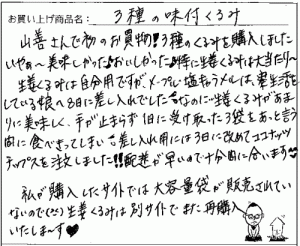 お買い上げ商品名： 3種の味付くるみ
山善さんで初のお買物!!3種のくるみを購入しました
いやぁ〜美味しかった♪おいしかった♪特に生姜くるみは大当たり〜
生姜くるみは自分用ですが、メープル・塩キャラメルは、寮生活をし
ている娘へ8日に差し入れでした なのに…生姜くるみがあま
りに美味しく、手が止まらず1日に受け取った3袋をあっと言う
間に食べきってしまい 差し入れ用には3日に改めてココナッツ
チップスを注文しました!!配送が早いので十分間に合います♡
私が購入したサイトでは大容量袋が販売されてい
ないので 生姜くるみは別サイトでまた再購入
いたしま〜す♥